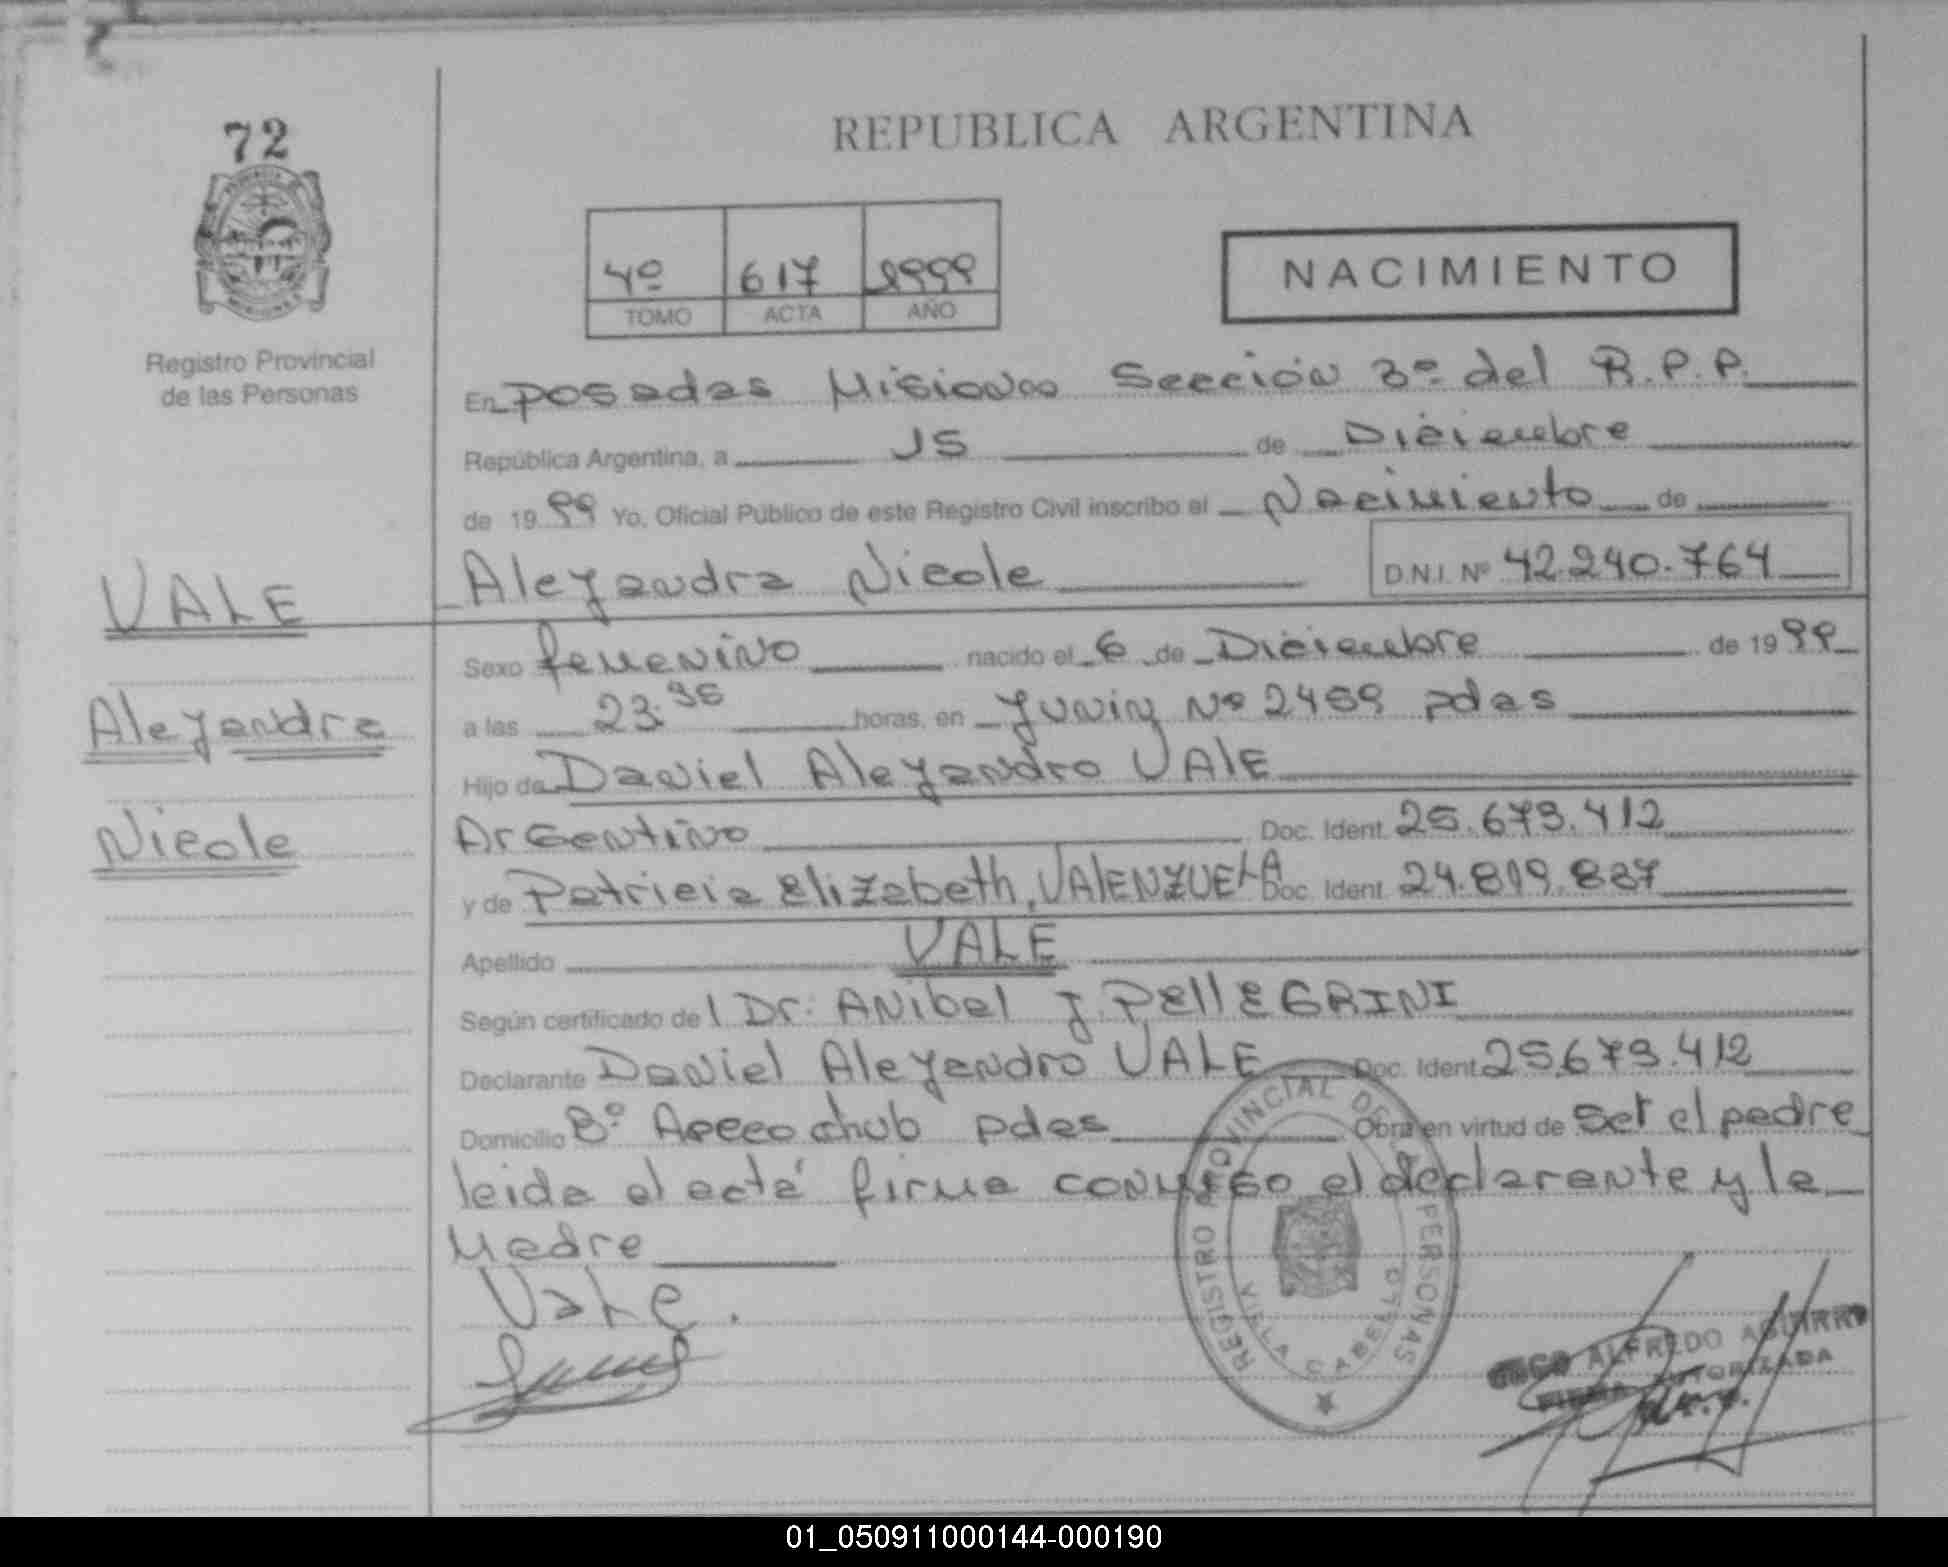 72
REPUBLICA ARGENTINA
4º 617 1999
TOMO ACTA AÑO
NACIMIENTO
Registro Provincial
de las Personas
En Posadas Misiones Sección 3º del R.P.P.
República Argentina, a 15 de Diciembre
de 1999 Yo, Oficial Público de este Registro Civil inscribo el Nacimiento de
Alejandra Nicole D.N.I. Nº 42.240.764
VALE
Alejandra
Nicole
Sexo femenino nacido el 6 de Diciembre de 1999
a las 23: horas, en Junin Nº 2459 pdas
Hijo de Daniel Alejandro VALE
Argentino Doc. Ident. 25.673.412
y de Patricia Elizabeth, VALENZUELA Doc. Ident. 24.819.887
Apellido VALE
Según certificado del Dr. Anibal J. PELLEGRINI
Declarante Daniel Alejandro VALE Doc. Ident 25.673.412
Domicilio Bº pdas Obra en virtud de Ser el padre
leida el acta firma conmigo el declarante y la
Madre
Vale.
REGISTRO PROVINCIAL DE PERSONAS
VILLA CABELLO
ALFREDO AGUIRRE
FIRMA AUTORIZADA
01_050911000144-000190